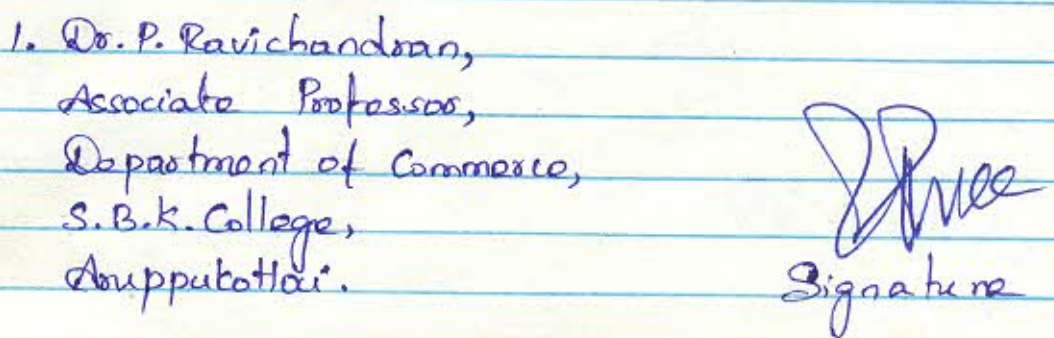 1. Dr. P. Ravichandran,
Associate Professor,
Department of Commerce,
S.B.K. College,
Aruppukottai.
Signature